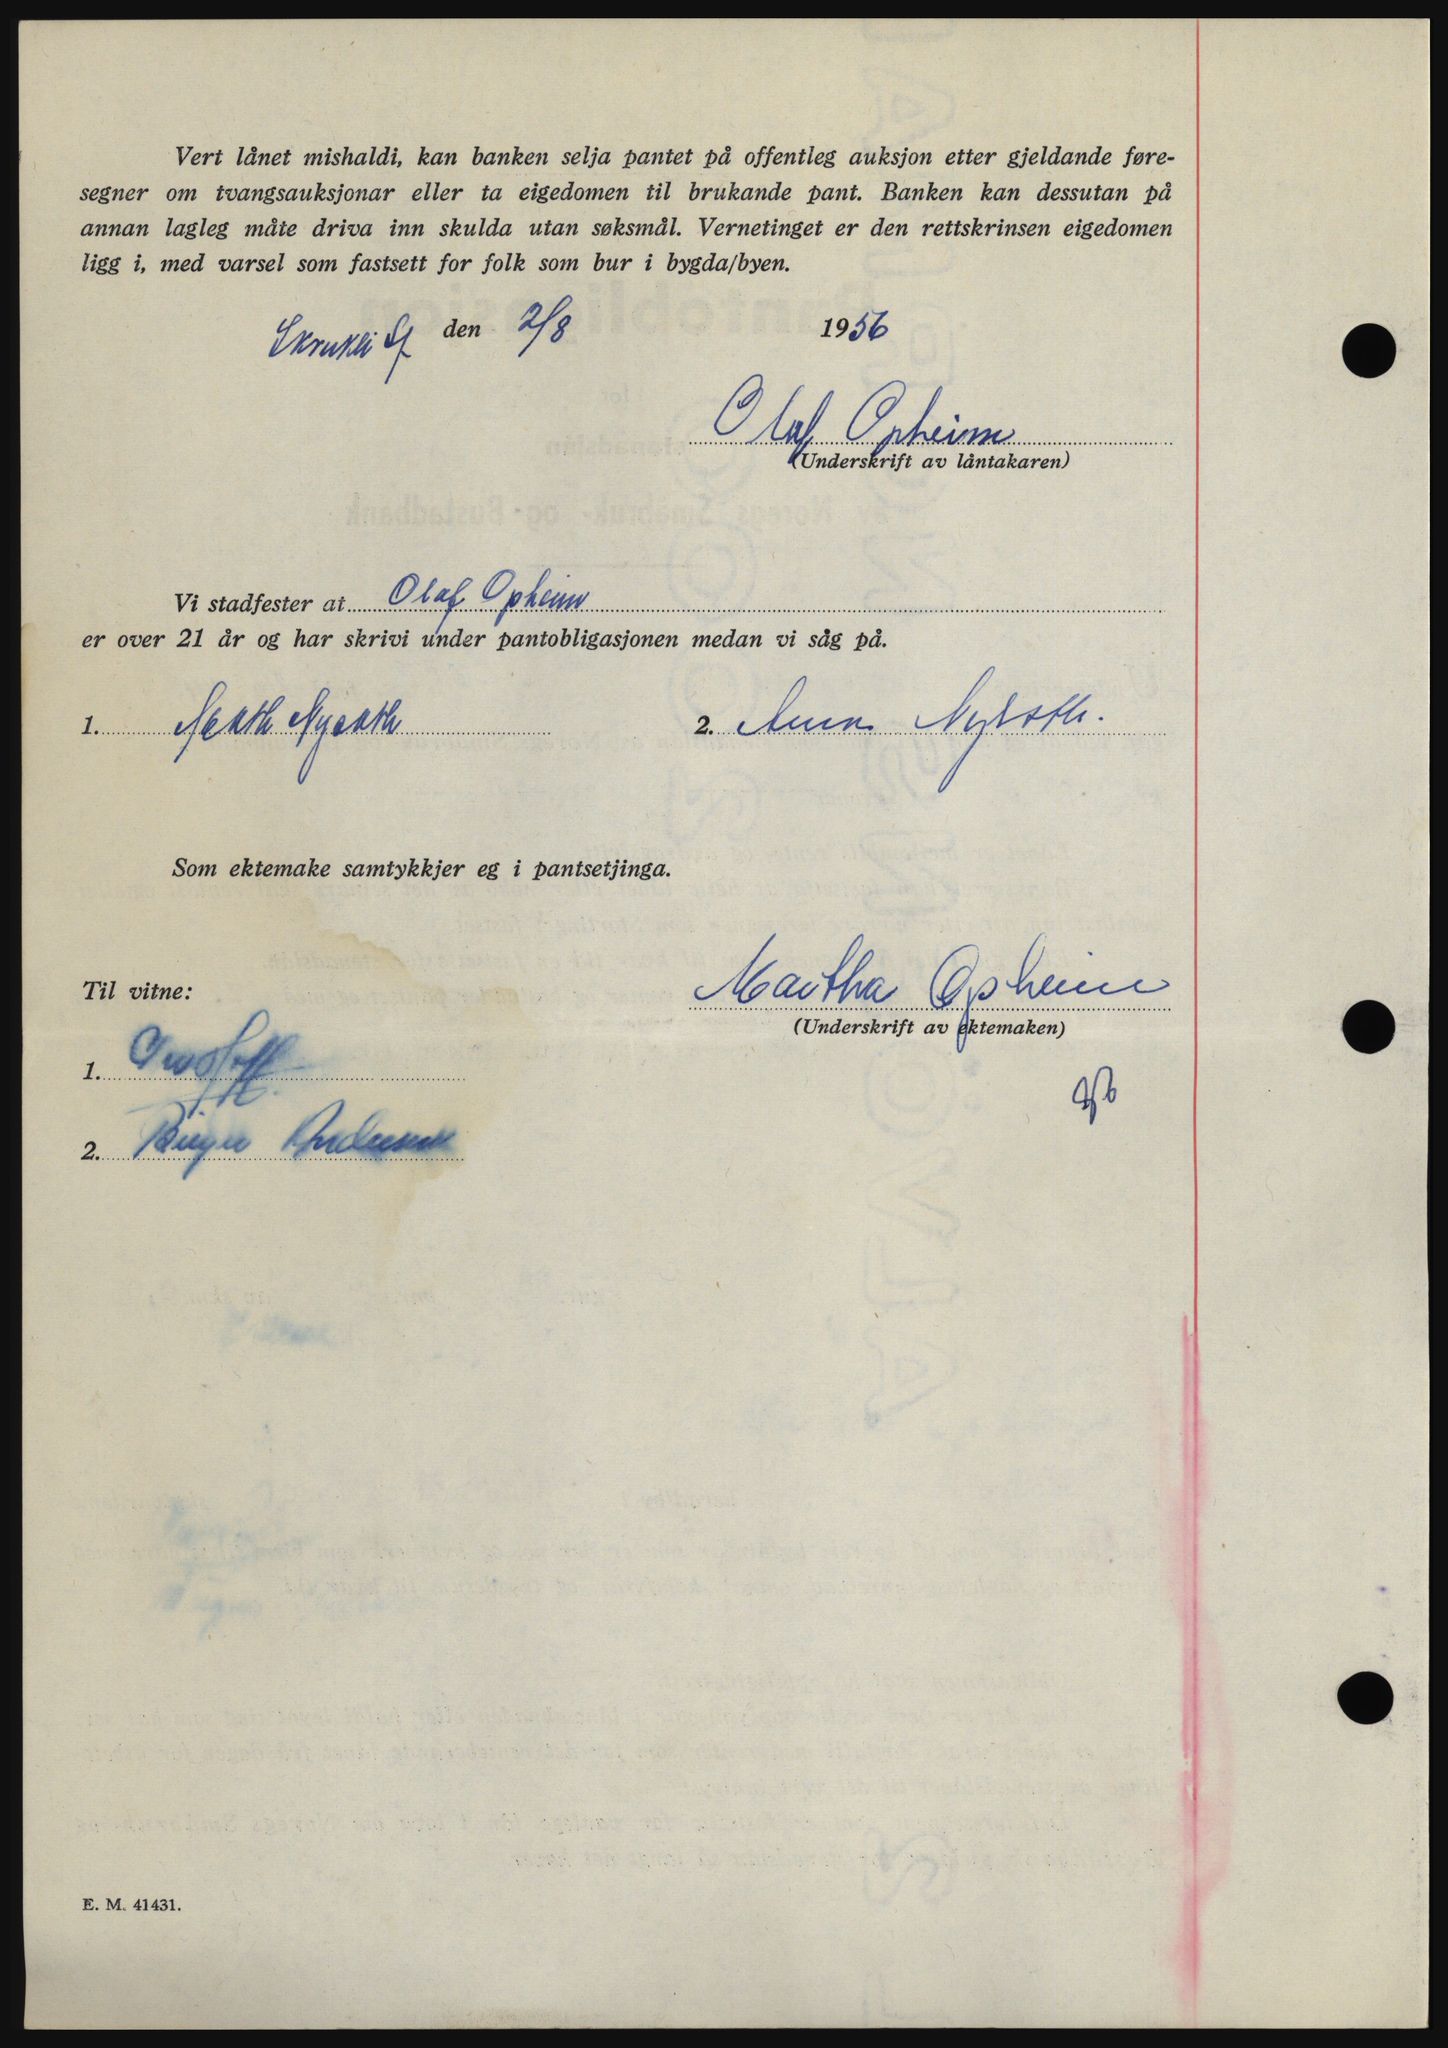 Vert lånet mishaldi, kan banken selja pantet på offentleg auksjon etter gjeldande føre-
segner om tvangsauksjonar eller ta eigedomen til brukande pant. Banken kan dessutan på
annan lagleg måte driva inn skulda utan søksmål. Vernetinget er den rettskrinsen eigedomen
ligg i, med varsel som fastsett for folk som bur i bygda/byen.
Skrukli den 2/8 1956
Olaf Opheim
(Underskrift av låntakaren)
Vi stadfester at Olaf Opheim
er over 21 år og har skrivi under pantobligasjonen medan vi såg på.
1. 2. Anna
Som ektemake samtykkjer eg i pantsetjinga.
Martha Opheim
Til vitne:
(Underskrift av ektemaken)
1.
2. Birger Andersen
E. M. 41431.